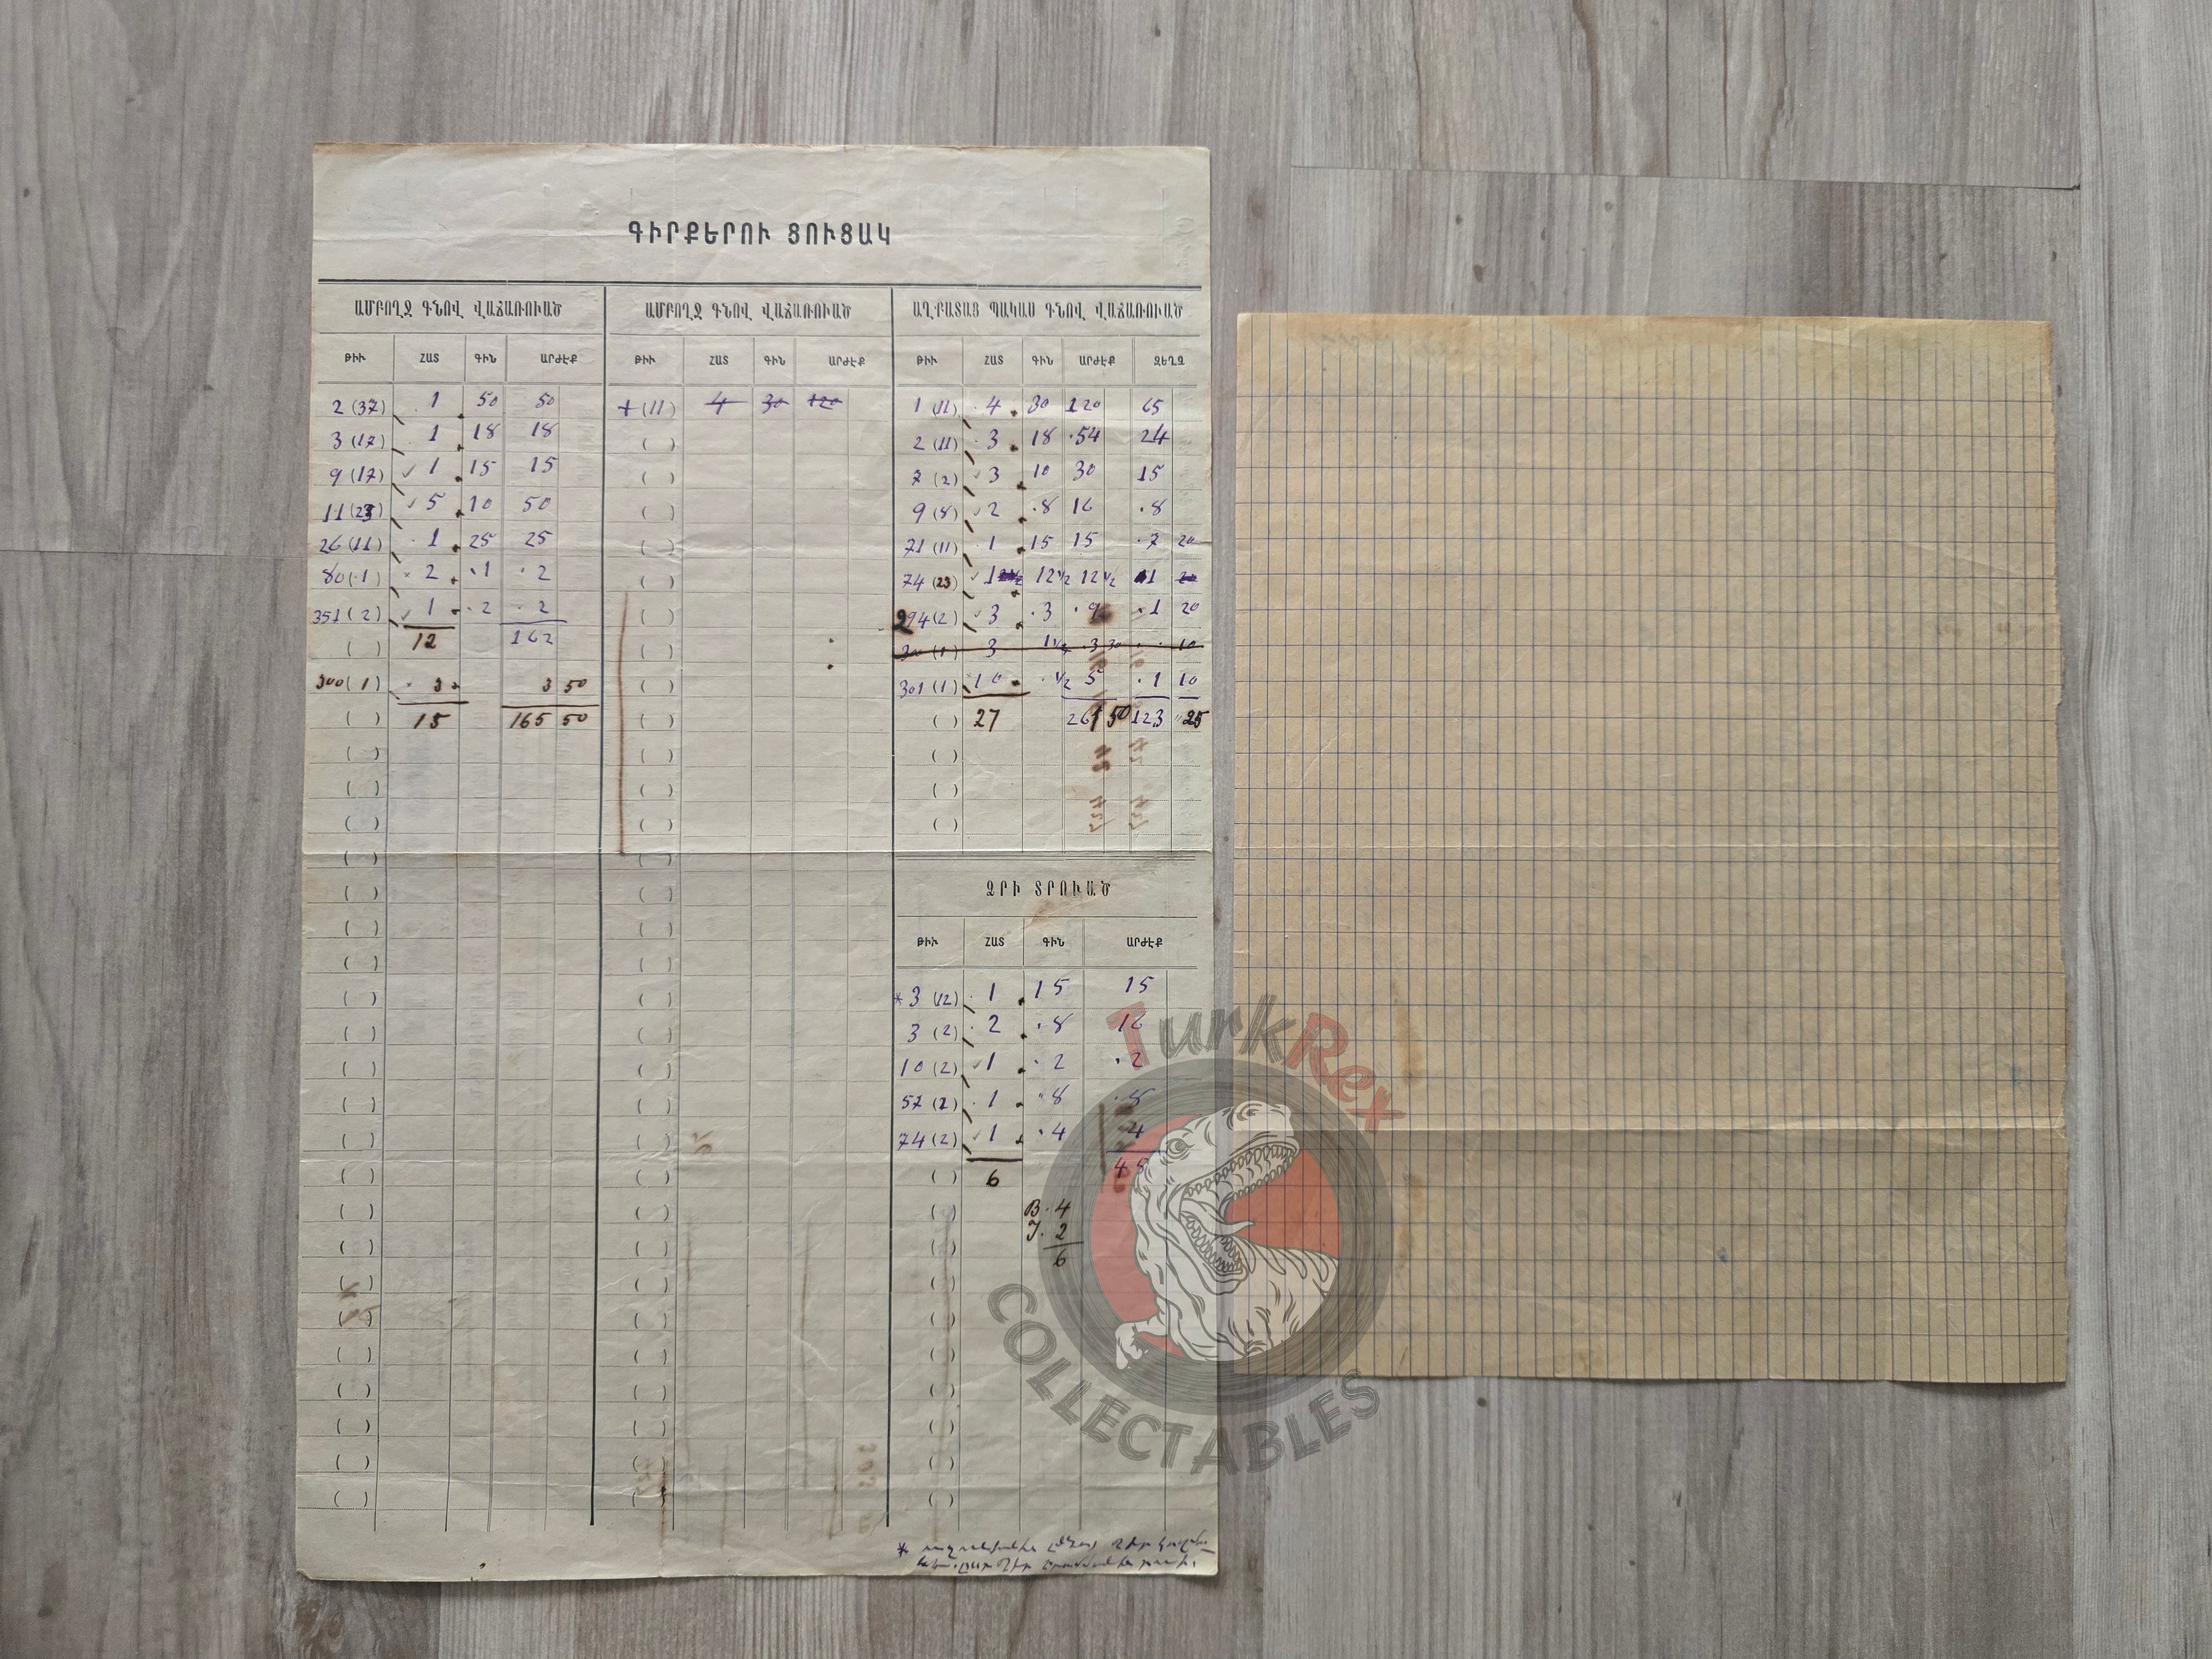 ԳԻՐՔԵՐՈՒ ՑՈՒՑԱԿ
ԱՄԲՈՂՋ ԳՆՈՎ ՎԱՃԱՌՈՒԱԾ
ԹԻՒ ՀԱՏ ԳԻՆ ԱՐԺԷՔ
2 (37) 1 50 50
3 (17) 1 18 18
9 (17) 1 15 15
11 (23) 5 10 50
26 (11) 1 25 25
80 (1) 2 1 2
351 (2) 1 2 2
12 162
300 (1) 3 3 50
15 165 50
ԱՄԲՈՂՋ ԳՆՈՎ ՎԱՃԱՌՈՒԱԾ
ԹԻՒ ՀԱՏ ԳԻՆ ԱՐԺԷՔ
1 (11) 4 30 120
ԱՂՔԱՏԱՑ ՊԱԿԱՍ ԳՆՈՎ ՎԱՃԱՌՈՒԱԾ
ԹԻՒ ՀԱՏ ԳԻՆ ԱՐԺԷՔ ԶԵՂՉ
1 (11) 4 30 120 65
2 (11) 3 18 54 24
7 (2) 3 10 30 15
9 (8) 2 8 16 8
71 (11) 1 15 15 7 20
74 (23) 1 12 1/2 12 1/2 1
294 (2) 3 3 9 1 20
300 (1) 3 1 1/4 3 30 10
301 (1) 10 1/2 5 1 10
27 261 50 123 25
ՁՐԻ ՏՐՈՒԱԾ
ԹԻՒ ՀԱՏ ԳԻՆ ԱՐԺԷՔ
* 3 (12) 1 15 15
3 (2) 2 8 16
10 (2) 1 2 2
57 (2) 1 8 8
74 (2) 1 4 4
6 45
B. 4
J. 2
6
TurkRex
COLLECTABLES